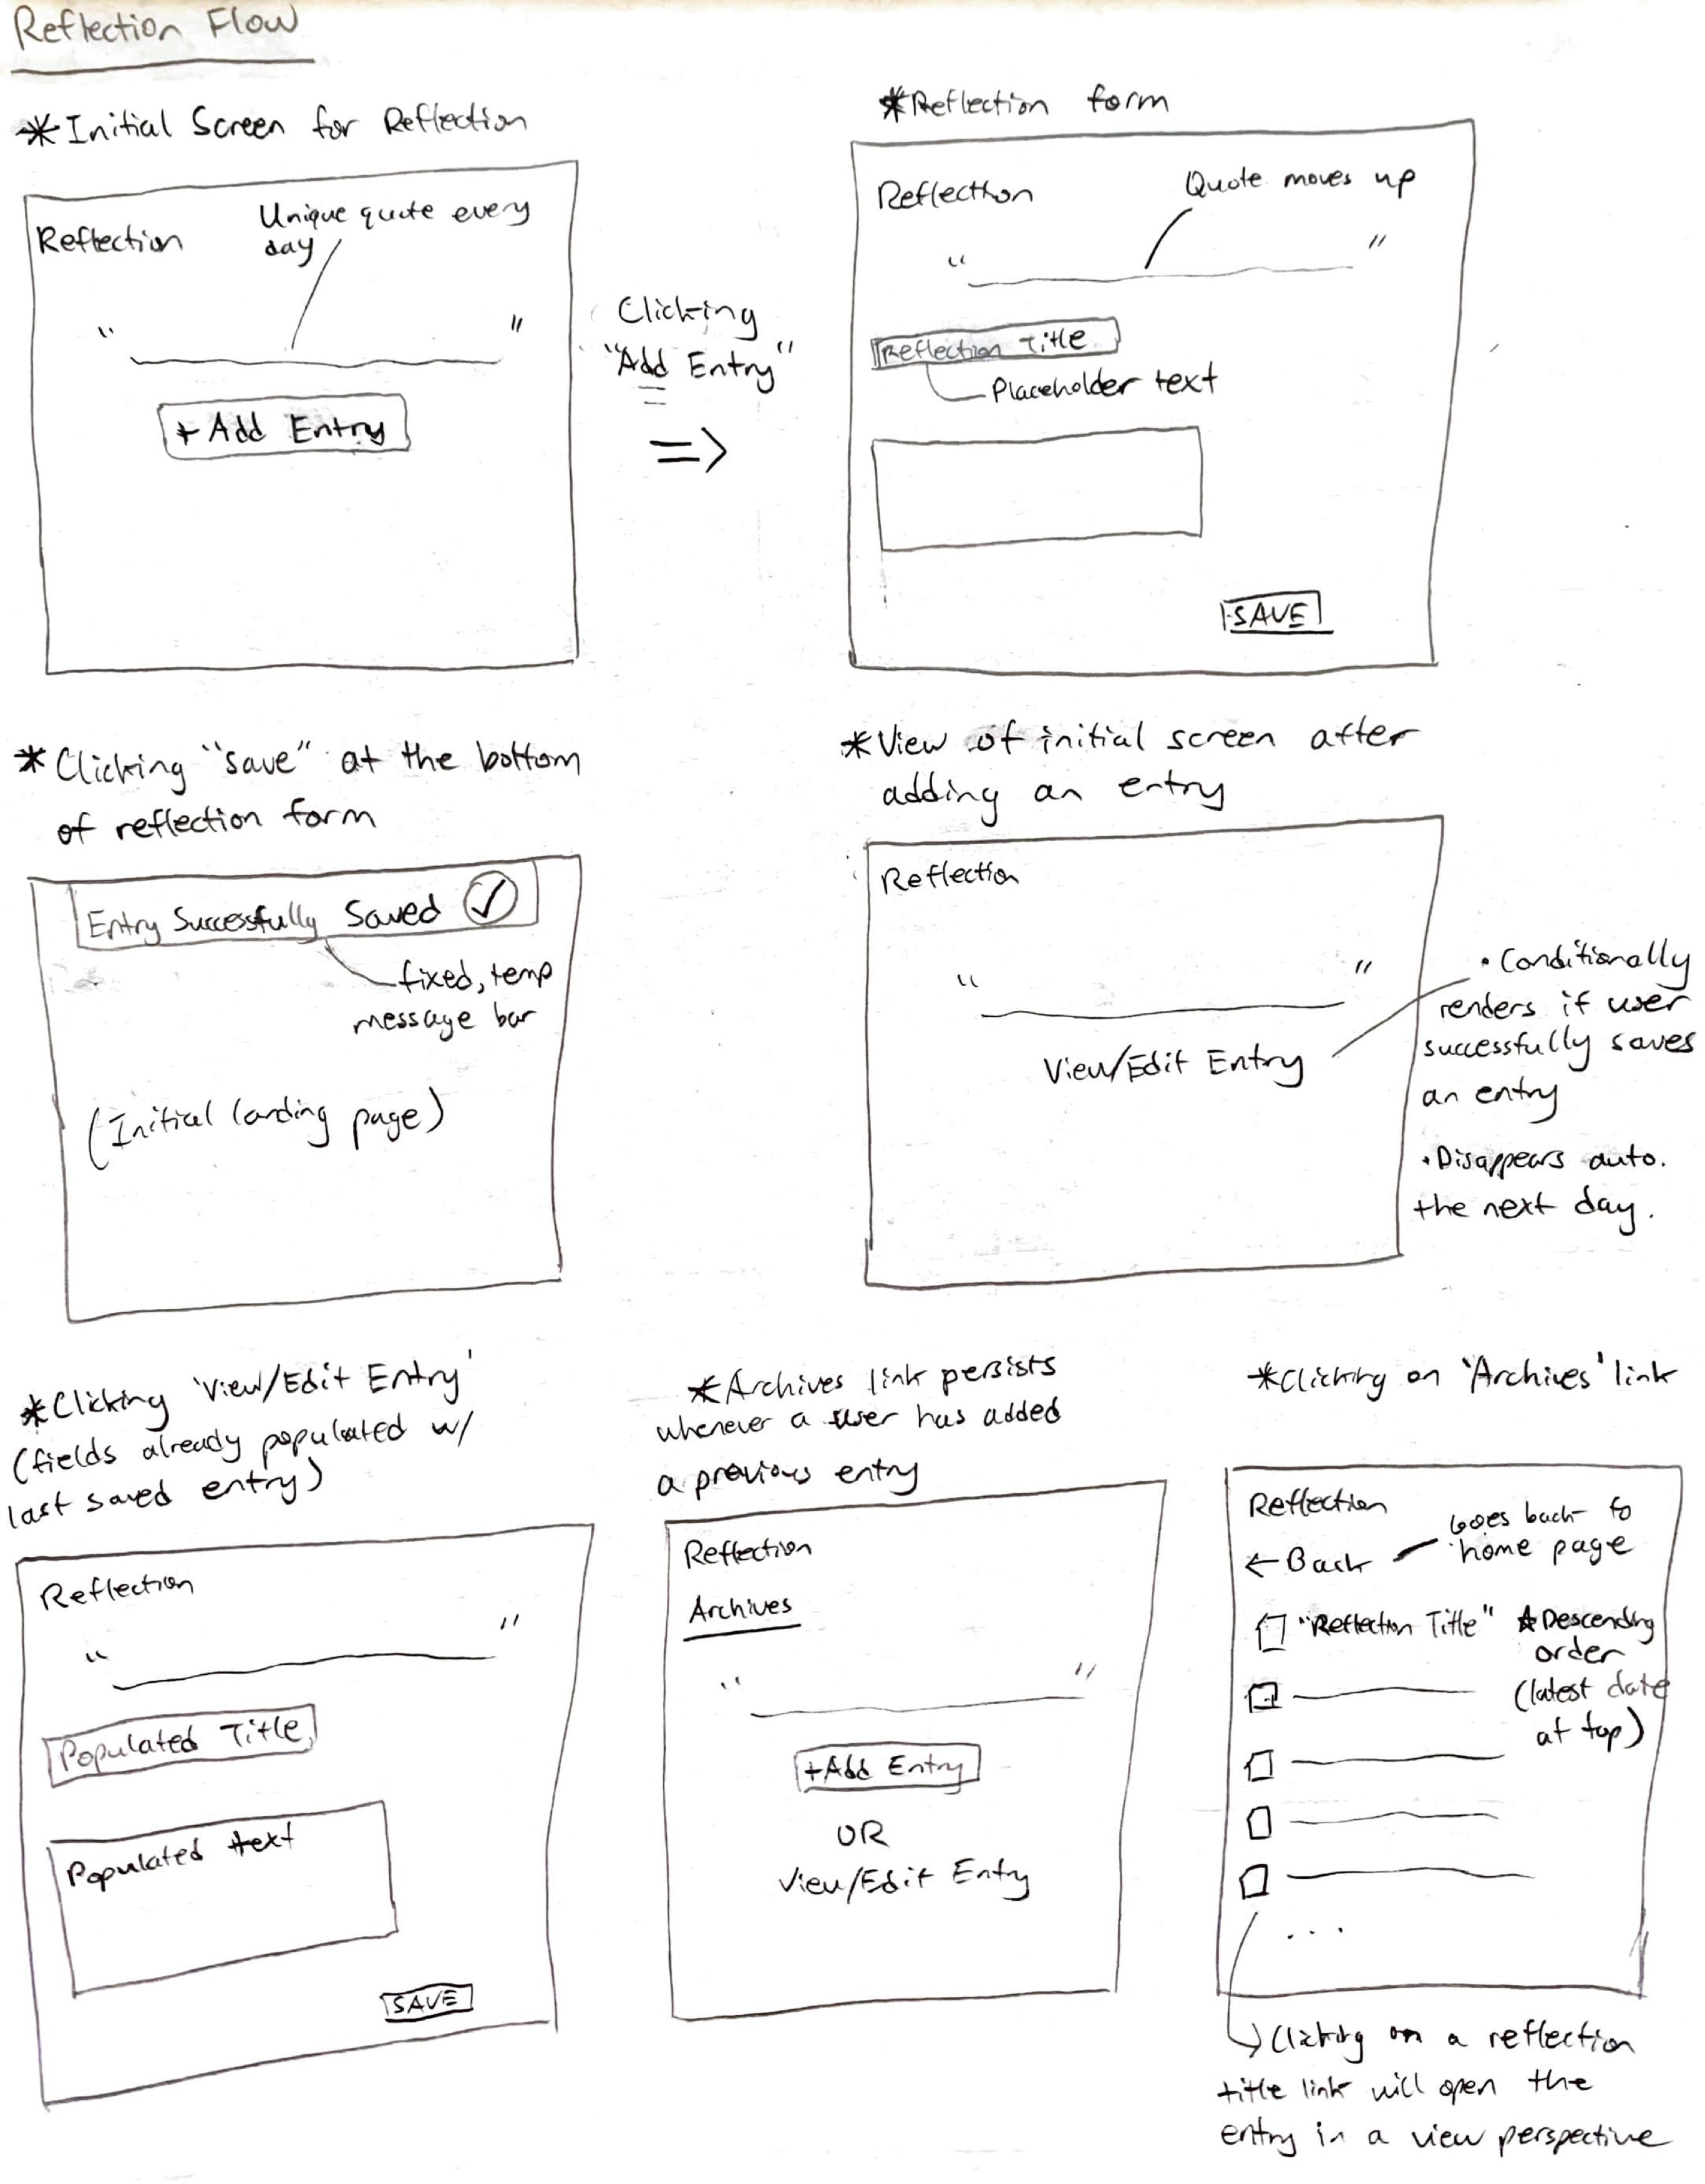 Reflection Flow
*Initial Screen for Reflection
Reflection
Unique quote every
day
" "
+ Add Entry
Clicking
"Add Entry"
=>
*Reflection form
Reflection
Quote moves up
" "
Reflection Title
Placeholder text
SAVE
*Clicking "save" at the bottom
of reflection form
Entry Successfully Saved ✓
fixed, temp
message bar
(Initial landing page)
*View of initial screen after
adding an entry
Reflection
" "
View/Edit Entry
• Conditionally
renders if user
successfully saves
an entry
• Disappears auto.
the next day.
*Clicking 'View/Edit Entry'
(fields already populated w/
last saved entry)
Reflection
" "
Populated Title
Populated text
SAVE
*Archives link persists
whenever a user has added
a previous entry
Reflection
Archives
" "
+Add Entry
OR
View/Edit Entry
*Clicking on 'Archives' link
Reflection
← Back
Goes back to
home page
"Reflection Title"
*Descending
order
(latest date
at top)
...
Clicking on a reflection
title link will open the
entry in a view perspective